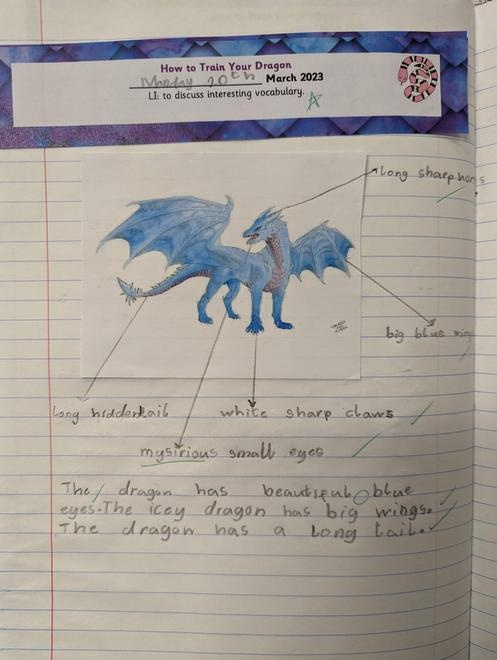 How to Train Your Dragon
Monday 20th March 2023
LI: to discuss interesting vocabulary.
long sharp horns
big blue wing
long hidden tail
white sharp claws
mysirious small eyes
The dragon has beautiful blue
eyes. The icey dragon has big wings.
The dragon has a long tail.